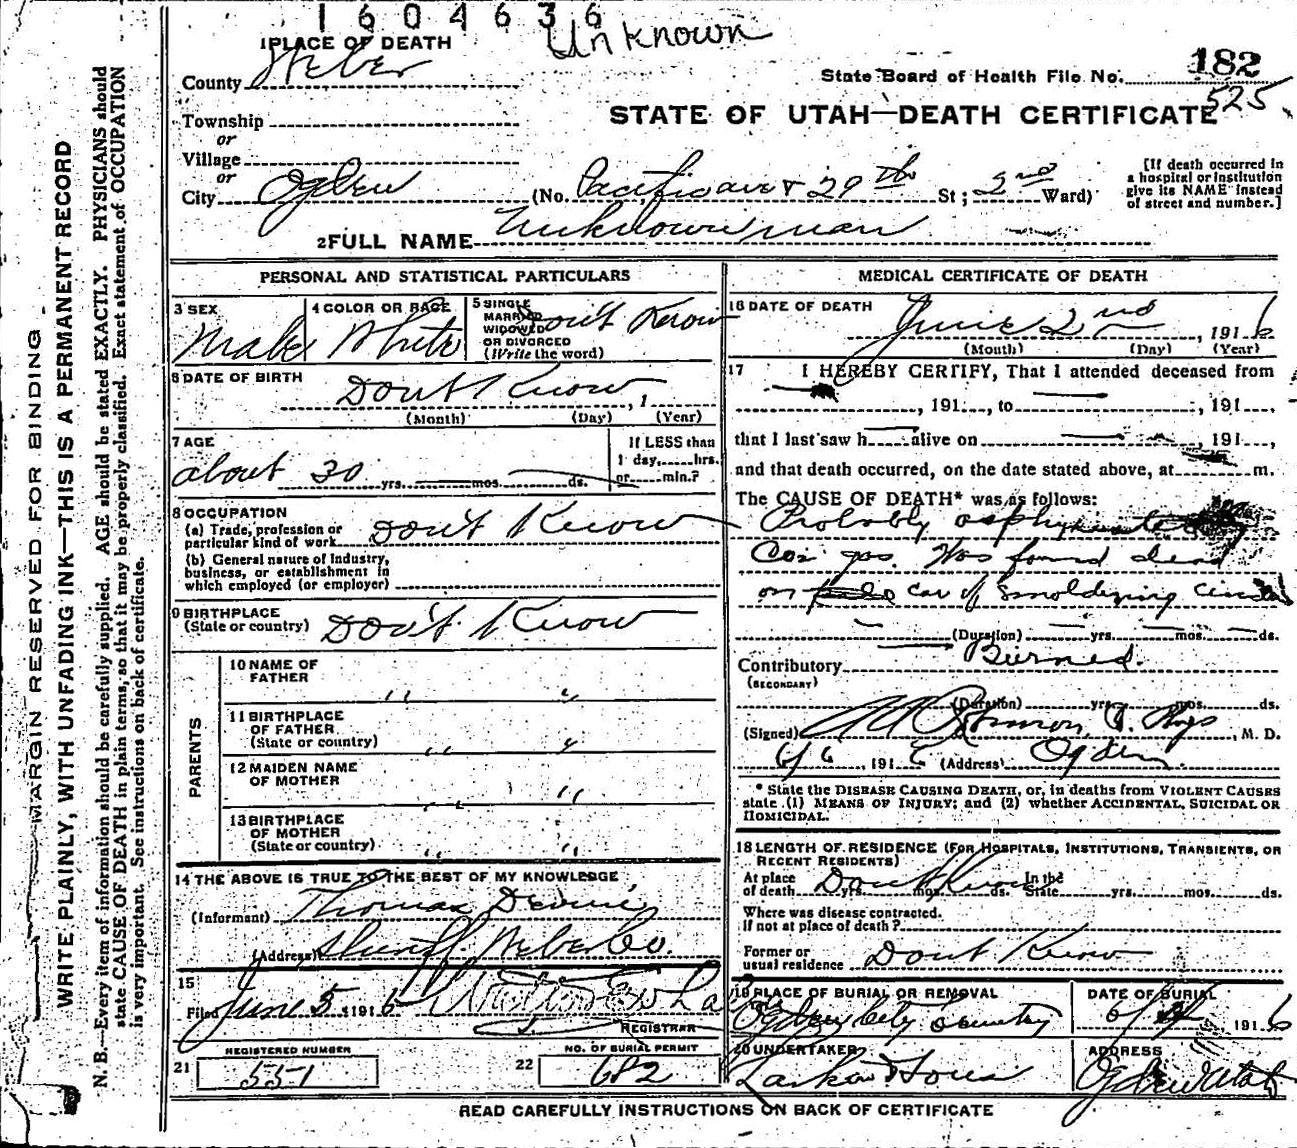 1604636
Unknown
1 PLACE OF DEATH
County Weber
State Board of Health File No. 182
525
STATE OF UTAH—DEATH CERTIFICATE
Township
or
Village
or
City Ogden (No. Pacific ave & 29th St; 2nd Ward)
[If death occurred in a hospital or institution give its NAME instead of street and number.]
2 FULL NAME Unknown man
MARGIN RESERVED FOR BINDING
WRITE PLAINLY, WITH UNFADING INK—THIS IS A PERMANENT RECORD
N. B.—Every item of information should be carefully supplied. AGE should be stated EXACTLY. PHYSICIANS should
state CAUSE OF DEATH in plain terms, so that it may be properly classified. Exact statement of OCCUPATION
is very important. See instructions on back of certificate.
PERSONAL AND STATISTICAL PARTICULARS
3 SEX
Male
4 COLOR OR RACE
White
5 SINGLE
MARRIED
WIDOWED
OR DIVORCED
(Write the word)
Dont Know
6 DATE OF BIRTH
Dont Know, 1
(Month) (Day) (Year)
7 AGE
about 30 yrs. mos. ds.
If LESS than
1 day, hrs.
or min.?
8 OCCUPATION
(a) Trade, profession or
particular kind of work Dont Know
(b) General nature of industry,
business, or establishment in
which employed (or employer)
9 BIRTHPLACE
(State or country) Dont Know
PARENTS
10 NAME OF
FATHER " "
11 BIRTHPLACE
OF FATHER
(State or country) " "
12 MAIDEN NAME
OF MOTHER " "
13 BIRTHPLACE
OF MOTHER
(State or country) " "
14 THE ABOVE IS TRUE TO THE BEST OF MY KNOWLEDGE
(Informant) Thomas Devine
(Address) Sheriff. Weber Co.
15
Filed June 5 1916
REGISTRAR
REGISTERED NUMBER
21 551
NO. OF BURIAL PERMIT
22 682
MEDICAL CERTIFICATE OF DEATH
16 DATE OF DEATH
June 2nd, 1916
(Month) (Day) (Year)
17 I HEREBY CERTIFY, That I attended deceased from
, 191 , to , 191 ,
that I last saw h alive on , 191 ,
and that death occurred, on the date stated above, at m.
The CAUSE OF DEATH* was as follows:
Probably
gas. Was found dead
on car of smoldering
(Duration) yrs. mos. ds.
Contributory Burned.
(SECONDARY)
(Duration) yrs. mos. ds.
(Signed) , M. D.
6/6, 1916 (Address) Ogden
* State the DISEASE CAUSING DEATH, or, in deaths from VIOLENT CAUSES
state (1) MEANS OF INJURY; and (2) whether ACCIDENTAL, SUICIDAL OR
HOMICIDAL.
18 LENGTH OF RESIDENCE (FOR HOSPITALS, INSTITUTIONS, TRANSIENTS, OR
RECENT RESIDENTS)
At place
of death Dont Know yrs. mos. ds. In the
State yrs. mos. ds.
Where was disease contracted.
if not at place of death?
Former or
usual residence Dont Know
19 PLACE OF BURIAL OR REMOVAL
Ogden City Cemetery
DATE OF BURIAL
1916
20 UNDERTAKER
Larkin & Sons
ADDRESS
Ogden Utah
READ CAREFULLY INSTRUCTIONS ON BACK OF CERTIFICATE